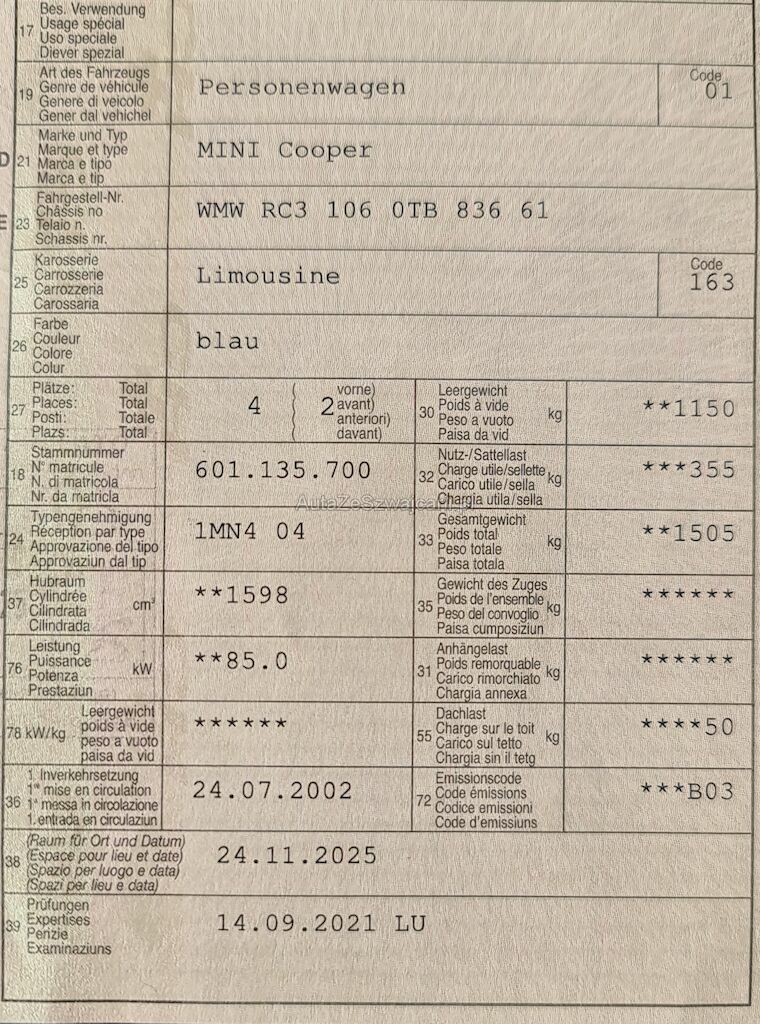 17 Bes. Verwendung
Usage spécial
Uso speciale
Diever spezial
19 Art des Fahrzeugs
Genre de véhicule
Genere di veicolo
Gener dal vehichel
Personenwagen
Code
01
D
21 Marke und Typ
Marque et type
Marca e tipo
Marca e tip
MINI Cooper
E
23 Fahrgestell-Nr.
Châssis no
Telaio n.
Schassis nr.
WMW RC3 106 0TB 836 61
25 Karosserie
Carrosserie
Carrozzeria
Carossaria
Limousine
Code
163
26 Farbe
Couleur
Colore
Colur
blau
27 Plätze: Total
Places: Total
Posti: Totale
Plazs: Total
4 ( 2 vorne)
avant)
anteriori)
davant)
30 Leergewicht
Poids à vide
Peso a vuoto
Paisa da vid
kg
**1150
18 Stammnummer
N° matricule
N. di matricola
Nr. da matricla
601.135.700
32 Nutz-/Sattellast
Charge utile/sellette
Carico utile/sella
Chargia utila/sella
kg
***355
24 Typengenehmigung
Réception par type
Approvazione del tipo
Approvaziun dal tip
1MN4 04
33 Gesamtgewicht
Poids total
Peso totale
Paisa totala
kg
**1505
37 Hubraum
Cylindrée
Cilindrata
Cilindrada
cm³
**1598
35 Gewicht des Zuges
Poids de l'ensemble
Peso del convoglio
Paisa cumposiziun
kg
******
76 Leistung
Puissance
Potenza
Prestaziun
kW
**85.0
31 Anhängelast
Poids remorquable
Carico rimorchiato
Chargia annexa
kg
******
78 kW/kg Leergewicht
poids à vide
peso a vuoto
paisa da vid
******
55 Dachlast
Charge sur le toit
Carico sul tetto
Chargia sin il tetg
kg
****50
36 1. Inverkehrsetzung
1re mise en circulation
1a messa in circolazione
1. entrada en circulaziun
24.07.2002
72 Emissionscode
Code émissions
Codice emissioni
Code d'emissiuns
***B03
38 (Raum für Ort und Datum)
(Espace pour lieu et date)
(Spazio per luogo e data)
(Spazi per lieu e data)
24.11.2025
39 Prüfungen
Expertises
Perizie
Examinaziuns
14.09.2021 LU